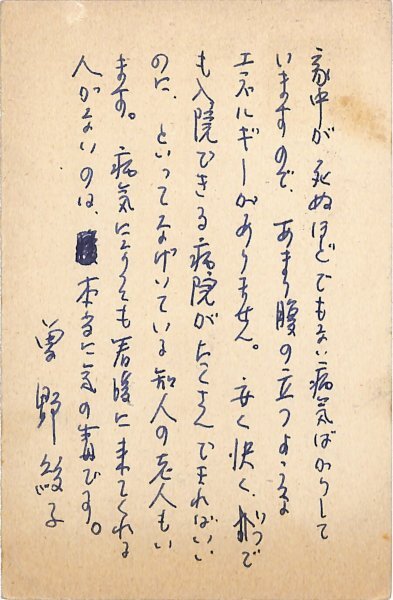 家中が死ぬほどでもない病気ばかりして
いますので、あまり腹の立つような
エネルギーがありません。安く快く、いつで
も入院できる病院がたくさんできればいい
のに、といってなげいている知人の老人もい
ます。病気になっても看護に来てくれる
人がないのは、本当に気の毒です。
曽野綾子